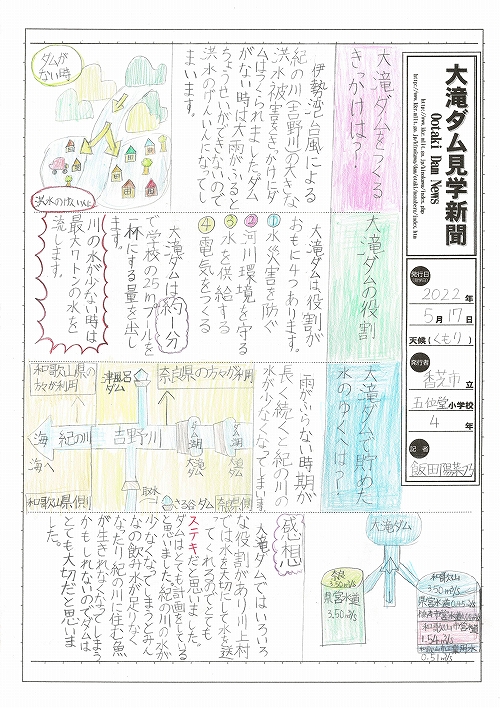 大滝ダム見学新聞
Ootaki Dam News
発行日
2022年
5月17日
天候(くもり)
発行者
香芝市立
五位堂小学校
4年
記者
大滝ダムをつくる
きっかけは?
伊勢湾台風による
紀の川(吉野川)の大きな
洪水被害をきっかけにダ
ムはつくられました。ダム
がない時は大雨がふると
ちょうせいができないので
洪水のげんいんになってし
まいます。
ダムが
ない時
洪水のげんいんに
大滝ダムの役割
大滝ダムは役割が
おもに4つあります。
①水災害を防ぐ
②河川環境を守る
③水を供給する
④電気をつくる
大滝ダムは約一分
で学校の25mプールを
一杯にする量を出し
ます。
川の水が少ない時は
最大7トンの水を
流します。
大滝ダムで貯めた
水のゆくへは?
雨がふらない時期が
長く続くと紀の川の
水が少なくなってしまいます。
和歌山県の
方々が利用
奈良県の方々が利用
津風呂
ダム
海
海へ
紀の川
吉野川
ダム湖
大滝
ダム
ダム湖
大迫
ダム
取水
さる谷ダム
和歌山県側
奈良県側
大滝ダム
奈良
3.50m³/s
県営水道
3.50m³/s
和歌山
3.50m³/s
県営水道0.45m³/s
和歌山市営水道
1.54m³/s
0.51m³/s
感想
大滝ダムではいろいろ
な役割があり川上村
では水を大切にして水を送
ってくれるのでとても
ステキだと思いました。
ダムはとても計画をしている
と思いました。紀の川の水が
少なくなってしまうとみん
なの飲み水が足りなく
なったり紀の川に住む魚
が生きれなくなってしまう
かもしれないのでダムは
とても大切だと思いま
した。